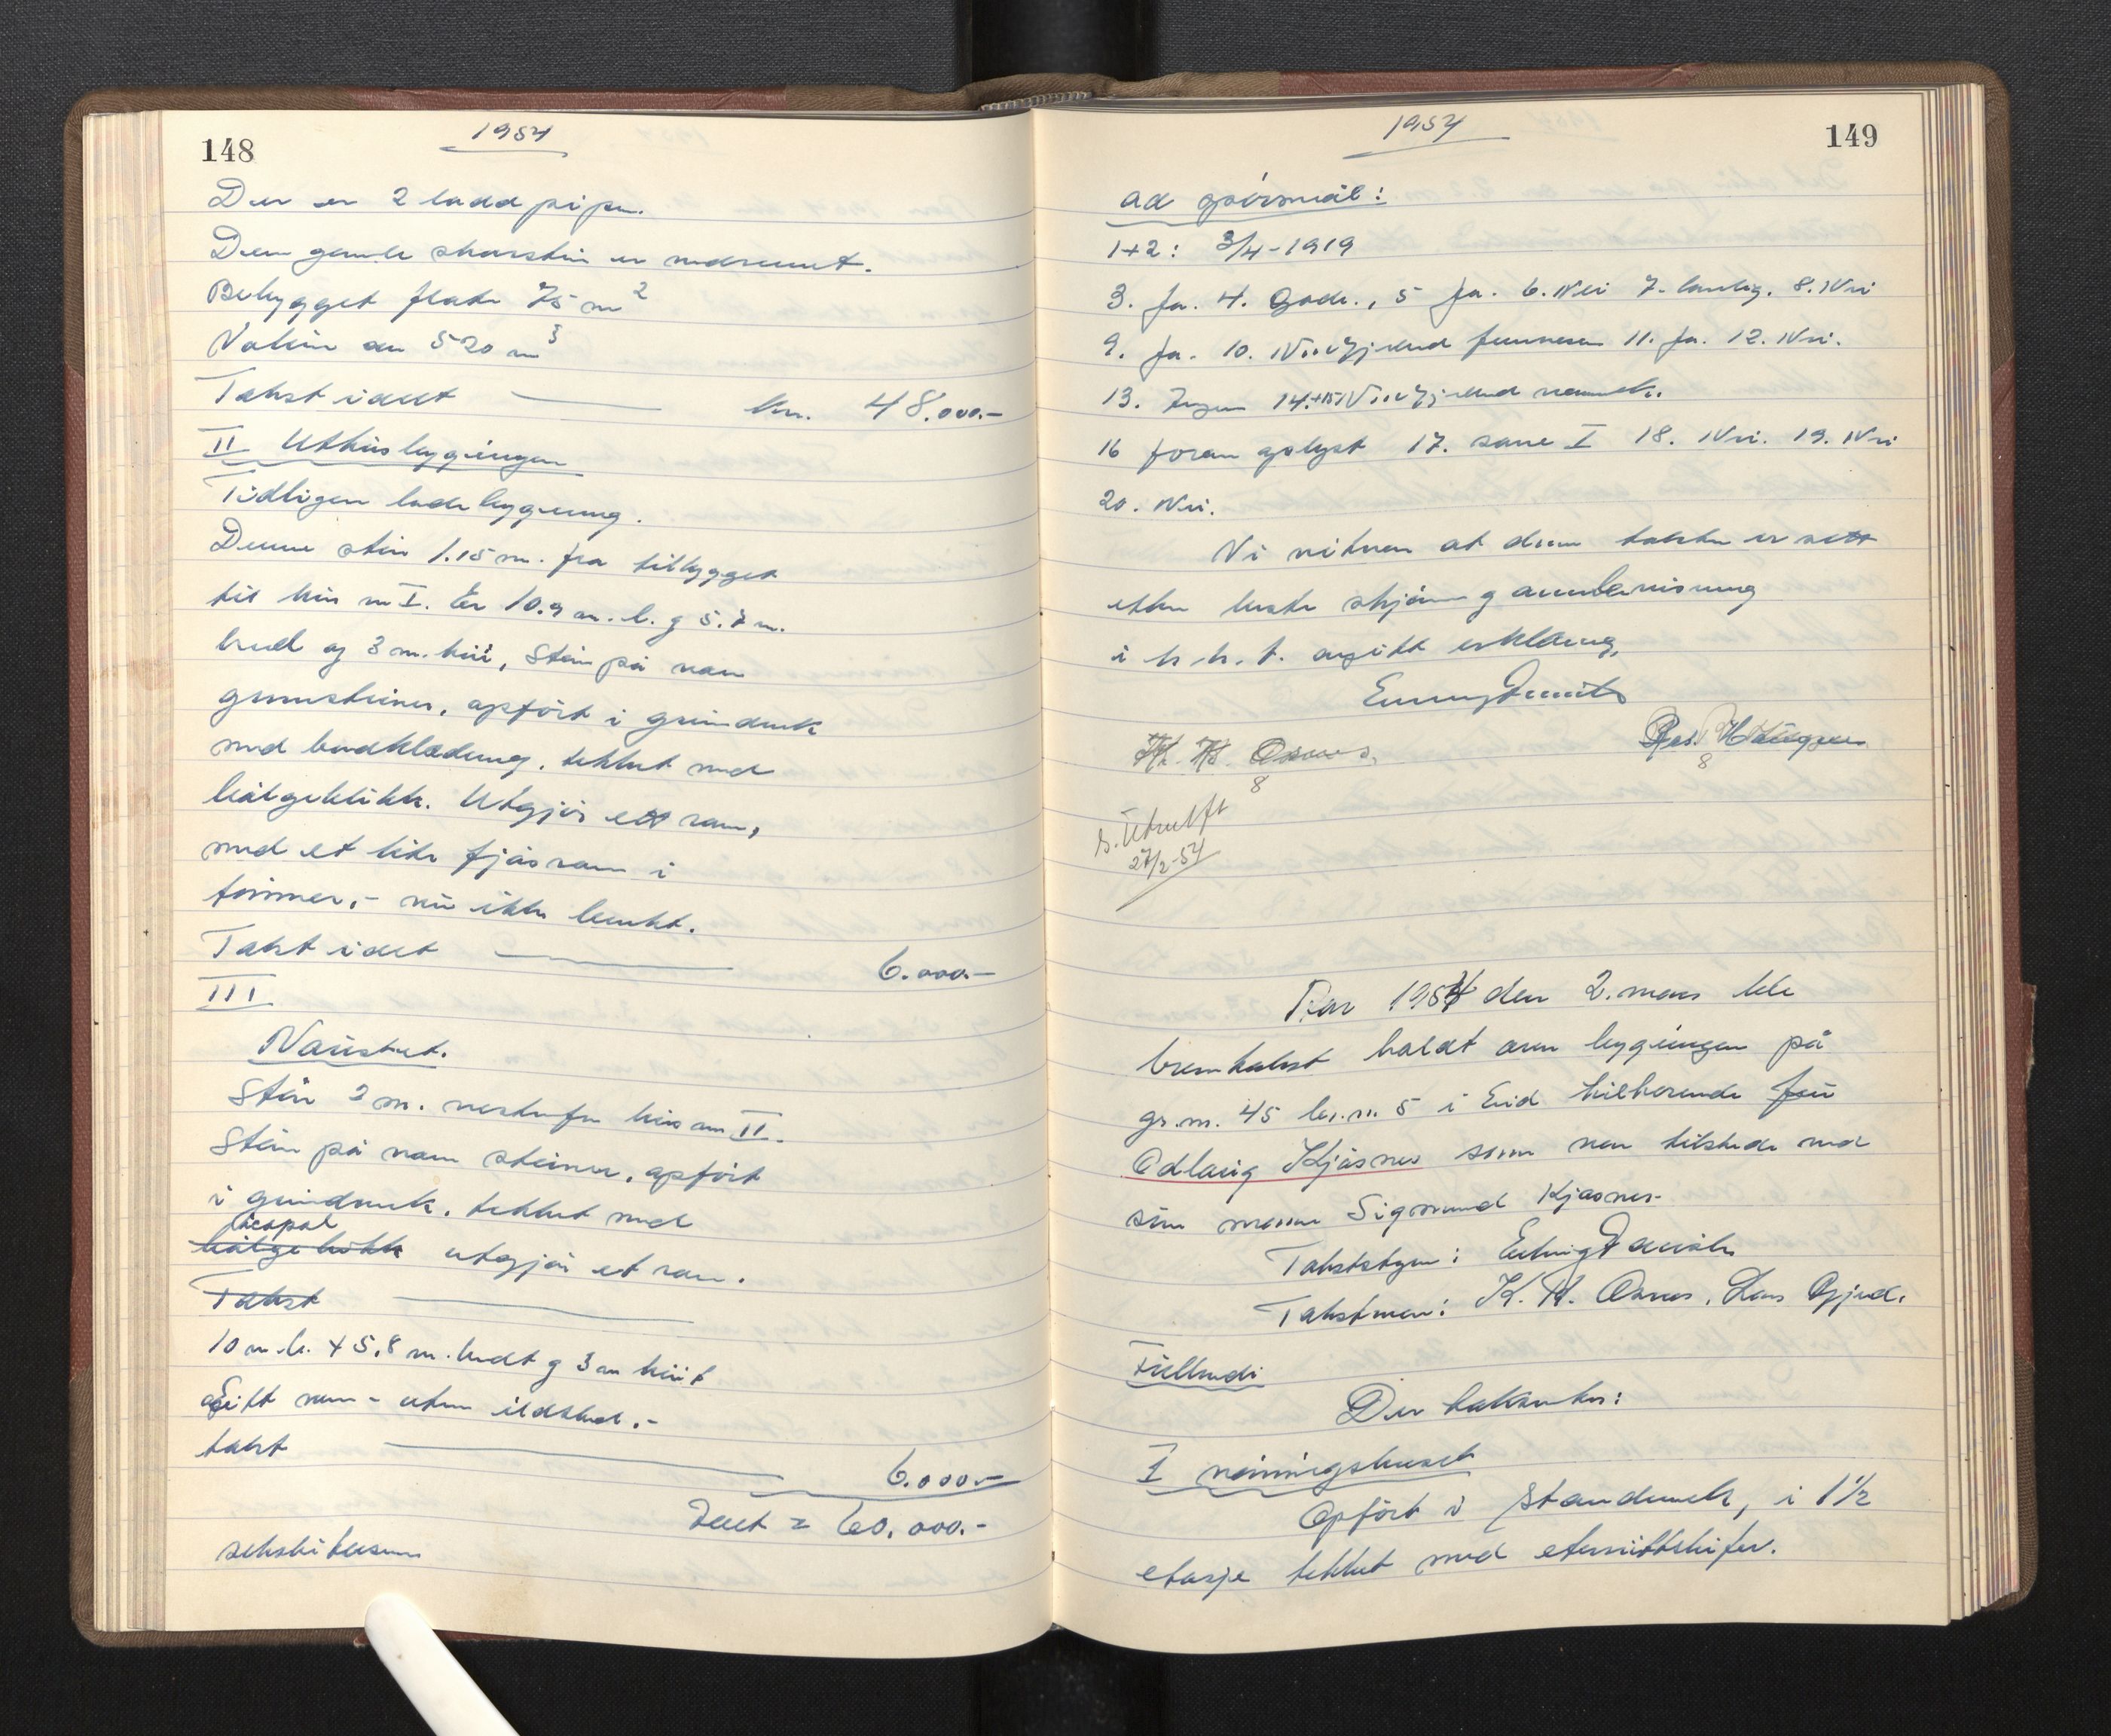 148
1954
Der er 2 ladd piper.
Den gamle skorstein er nedrevet.
Bebygget flate 75 m²
Volum ca 520 m³
Takst i alt kr. 48.000.-
II Uthusbyggingen
Tidligere ladebygning.
Denne står 1.15 m. fra tilbygget
til hus nr I. Er 10.9 m. l. og 5.7 m.
bred og 3 m. høi, står på
grunnsteiner, opført i grindverk
med bordkledning, tekket med
bølgeblikk. Utgjør ett rom,
med et lite fjøsrom i
tømmer.- nu ikke brukt.
Takst i alt 6.000.-
III
Naustet.
Står 2 m. vestenfor hus nr II.
Står på steiner, opført
i grindverk, tekket med
bølgeblikk utgjør et rom.
Takst
10 m l. + 5,8 m. bredt og 3 m høit
Eitt rom - uten ildsted.-
takst
6.000.-
Ialt = 60.000.-
sekstitusen
149
1954
ad spørsmål:
1+2: 3/4-1919
3. Ja. 4. Gode., 5 Ja. 6. Nei 7. 8. Nei
9. Ja. 10. 11. Ja. 12. Nei.
13. Ingen 14.+15
16 foran oplyst 17. sone I 18. Nei. 19. Nei
20. Nei.
Vi vitner at denne takster er sett
etter beste skjønn og
i h. h. t. avgitt erklæring.
K. K. Osnes.
27/2-54
År 1954 den 2. mars ble
branntakst holdt over bygningen på
gr.nr. 45 br.nr. 5 i Eid tilhørende fru
Odlaug Kjøsnes som var tilstede med
sin mann Sigmund Kjøsnes.
Takststyrer:
Takstmenn: K. K. Osnes, Lars Gjerd.
Der takseres:
I våningshuset
Opført i standverk, i 1 1/2
etasje tekket med eternittskifer.